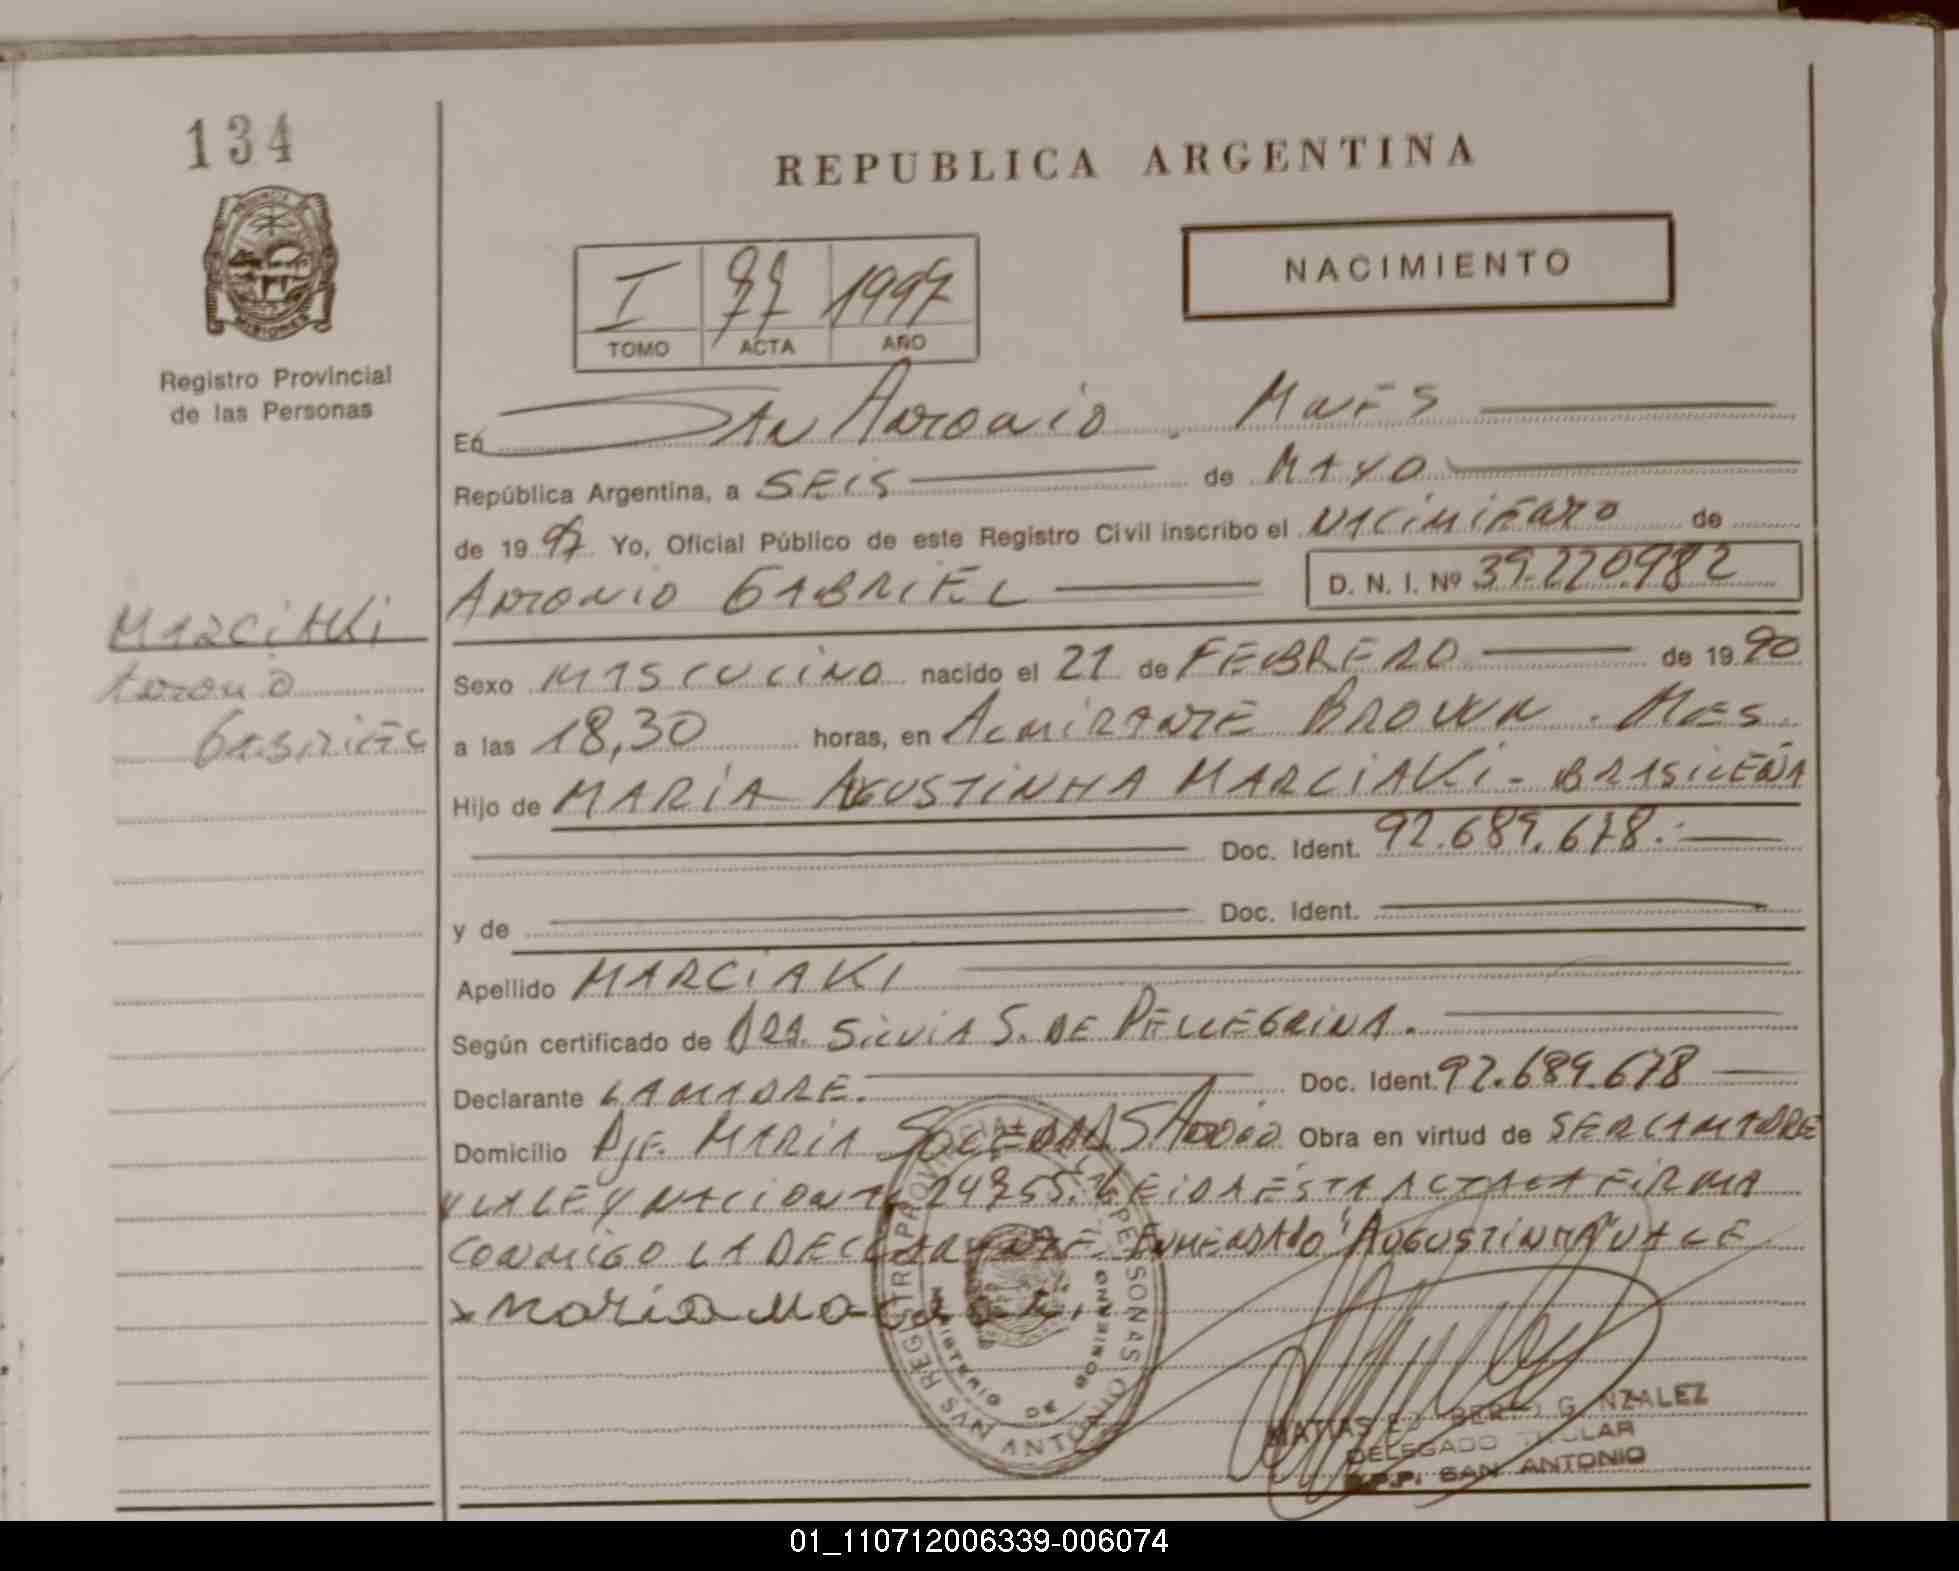 134
REPUBLICA ARGENTINA
NACIMIENTO
I 77 1997
TOMO ACTA AÑO
MISIONES
Registro Provincial
de las Personas
En San Antonio. Mnes
República Argentina, a SEIS de MAYO
de 1997 Yo, Oficial Público de este Registro Civil inscribo el NACIMIENTO de
ANTONIO GABRIEL D. N. I. Nº 39.220.982
MARCIAKI
Antonio
Gabriel
Sexo MASCULINO nacido el 21 de FEBRERO de 1990
a las 18,30 horas, en ALMIRANTE BROWN. Mnes.
Hijo de MARIA AGUSTINHA MARCIAKI - BRASILEÑA
Doc. Ident. 92.689.678.-
y de Doc. Ident.
Apellido MARCIAKI
Según certificado de DRA. SILVIA S. DE PELLEGRINA.
Declarante LA MADRE. Doc. Ident. 92.689.678
Domicilio Pje. MARIA SOLEDAD S. Antonio Obra en virtud de SER LA MADRE
Y LA LEY NACIONAL 24755. LEIDA ESTA ACTA LA FIRMA
CONMIGO LA DECLARANTE. ENMENDADO "AUGUSTINHA" VALE
x Maria
REGISTRO PROVINCIAL DE LAS PERSONAS
MINISTERIO DE GOBIERNO
SAN ANTONIO MNS
MATIAS GONZALEZ
DELEGADO TITULAR
R.P.P. SAN ANTONIO
01_110712006339-006074